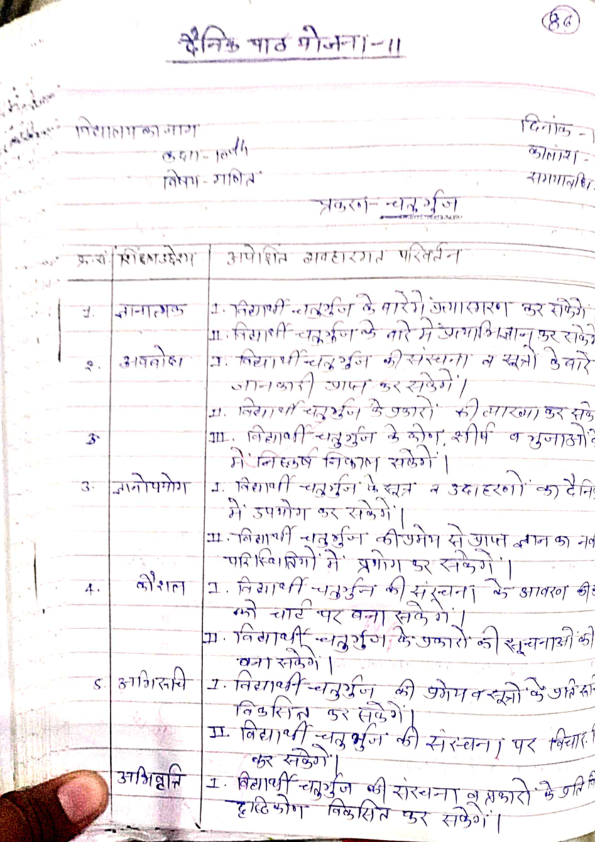 दैनिक पाठ योजना-11
विद्यालय का नाम
कक्षा-
विषय-गणित
दिनांक-
कालांश-
समयावधि
प्रकरण-चतुर्भुज
क्र.सं शिक्षण उद्देश्य अपेक्षित व्यवहारगत परिवर्तन
1. ज्ञानात्मक I. विद्यार्थी चतुर्भुज के बारे में प्रत्यास्मरण कर सकेंगे
II. विद्यार्थी चतुर्भुज के बारे में प्रत्याभिज्ञान कर सकेंगे
2. अवबोध I. विद्यार्थी चतुर्भुज की संरचना व सूत्रों के बारे
जानकारी प्राप्त कर सकेंगे।
II. विद्यार्थी चतुर्भुज के प्रकारों की व्याख्या कर सके
3 III. विद्यार्थी चतुर्भुज के कोण, शीर्ष व भुजाओं के
में निष्कर्ष निकाल सकेंगे।
3. ज्ञानोपयोग I. विद्यार्थी चतुर्भुज के सूत्र व उदाहरणों का दैनि
में उपयोग कर सकेंगे।
II. विद्यार्थी चतुर्भुज की प्रमेय से प्राप्त ज्ञान का नव
परिस्थितियों में प्रयोग कर सकेंगे।
4. कौशल I. विद्यार्थी चतुर्भुज की संरचना के
को चार्ट पर बना सकेंगे।
II. विद्यार्थी चतुर्भुज के प्रकारों की सूचनाओं की
बना सकेंगे।
5. अभिरूचि I. विद्यार्थी चतुर्भुज की प्रमेय व सूत्रों के प्रति
विकसित कर सकेंगे।
II. विद्यार्थी चतुर्भुज की संरचना पर विचार
कर सकेंगे।
अभिवृत्ति I. विद्यार्थी चतुर्भुज की संरचना व प्रकारों के प्रति
दृष्टिकोण विकसित कर सकेंगे।